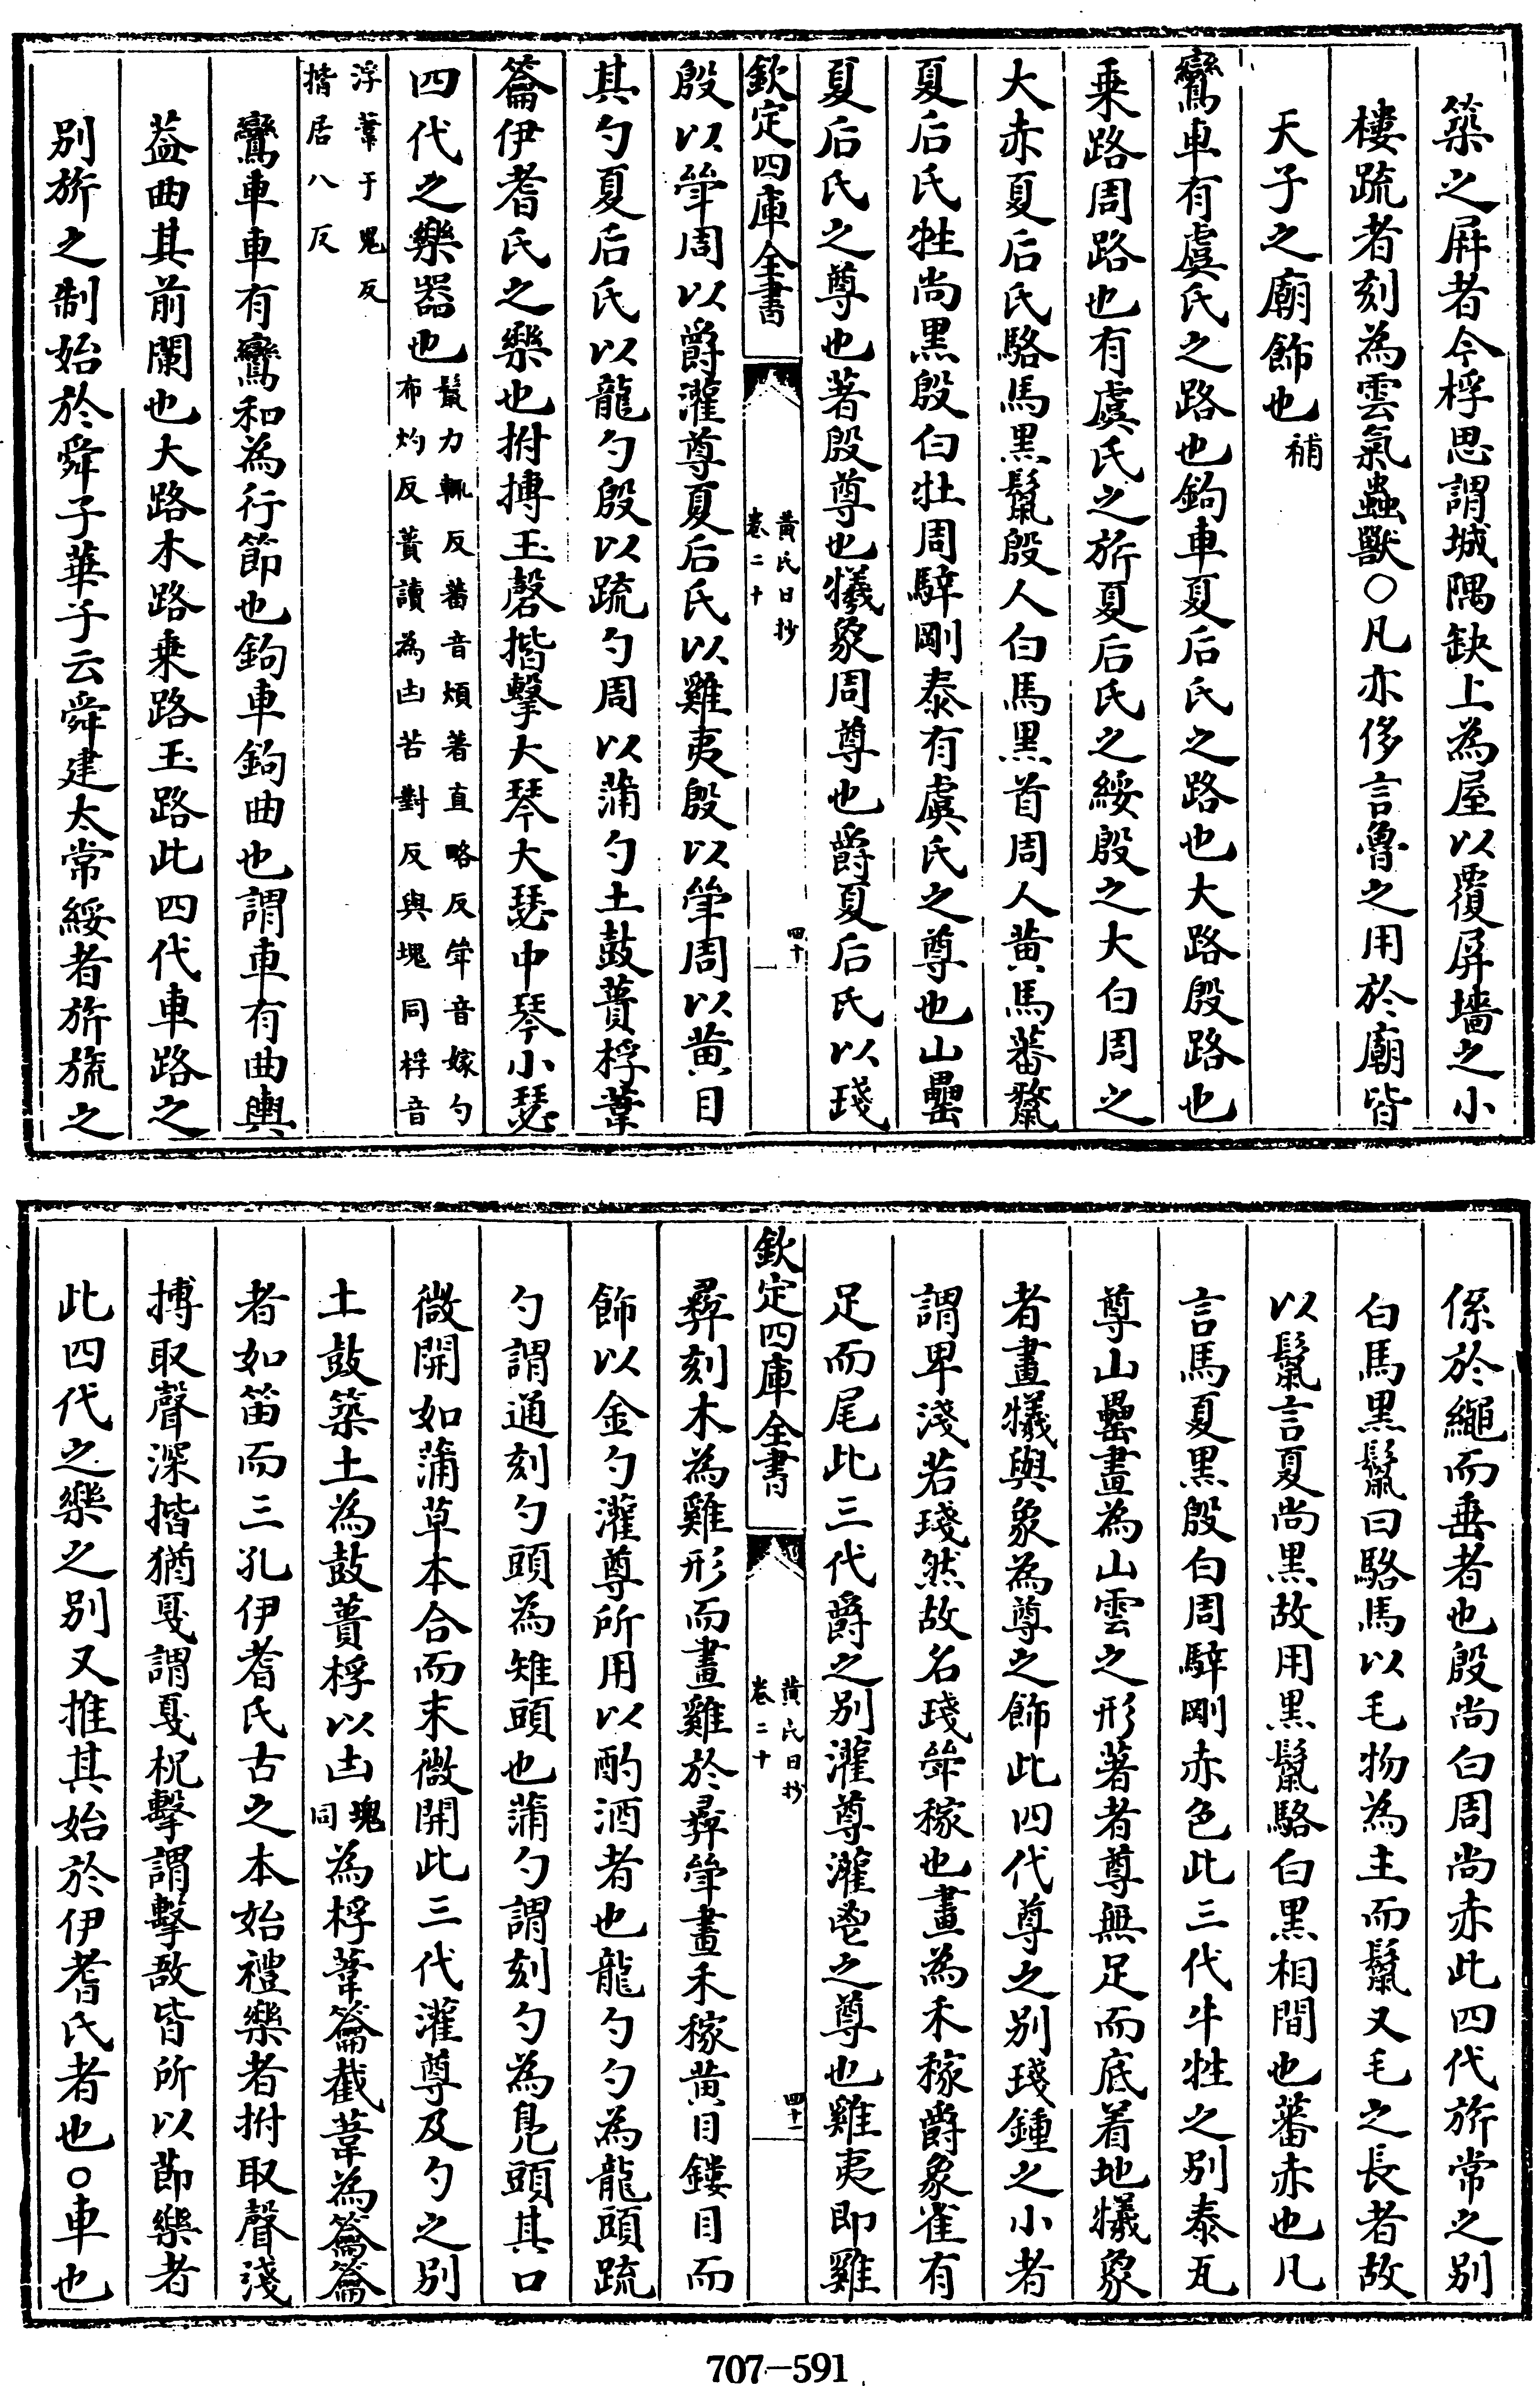 築之屏者今桴思謂城隅缺上為屋以覆屏墻之小
樓䟽者刻為雲氣蟲獸○凡亦侈言魯之用於廟皆
天子之廟飾也補
鸞車有虞氏之路也鉤車夏后氏之路也大路殷路也
乘路周路也有虞氏之旂夏后氏之綏殷之大白周之
大赤夏后氏駱馬黑鬛殷人白馬黑首周人黄馬蕃鬛
夏后氏牲尚黑殷白牡周騂剛泰有虞氏之尊也山罍
夏后氏之尊也著殷尊也犧象周尊也爵夏后氏以琖
欽定四庫全書
黄氏日抄
卷二十
四十
殷以斝周以爵灌尊夏后氏以雞夷殷以斝周以黄目
其勺夏后氏以龍勺殷以䟽勺周以蒲勺土鼓蕢桴葦
籥伊耆氏之樂也拊搏玉磬揩擊大琴大瑟中琴小瑟
四代之樂器也鬛力輒反蕃音煩著直略反斝音嫁勺
布灼反蕢讀為凷苦對反與塊同桴音
浮葦于鬼反
揩居八反
鸞車車有鸞和為行節也鉤車鉤曲也謂車有曲輿
葢曲其前闌也大路木路乘路玉路此四代車路之
别旂之制始於舜子華子云舜建太常綏者旂旒之
係於繩而垂者也殷尚白周尚赤此四代旂常之别
白馬黑鬛曰駱馬以毛物為主而鬛又毛之長者故
以鬛言夏尚黑故用黑鬛駱白黑相間也蕃赤也凡
言馬夏黑殷白周騂剛赤色此三代牛牲之别泰瓦
尊山罍畫為山雲之形著者尊無足而底着地犧象
者畫犧與象為尊之飾此四代尊之别琖鍾之小者
謂卑淺若琖然故名琖斝稼也畫為禾稼爵象雀有
足而尾此三代爵之别灌尊灌鬯之尊也雞夷即雞
欽定四庫全書
黄氏日抄
卷二十
四十一
彞刻木為雞形而畫雞於彞斝畫禾稼黄目鏤目而
飾以金勺灌尊所用以酌酒者也龍勺勺為龍頭䟽
勺謂通刻勺頭為雉頭也蒲勺謂刻勺為鳬頭其口
微開如蒲草本合而末微開此三代灌尊及勺之别
土鼓築土為鼓蕢桴以凷塊同為桴葦籥截葦為籥籥
者如笛而三孔伊耆氏古之本始禮樂者拊取聲淺
搏取聲深揩猶戞謂戞柷擊謂擊敔皆所以節樂者
此四代之樂之别又推其始於伊耆氏者也○車也
707—591